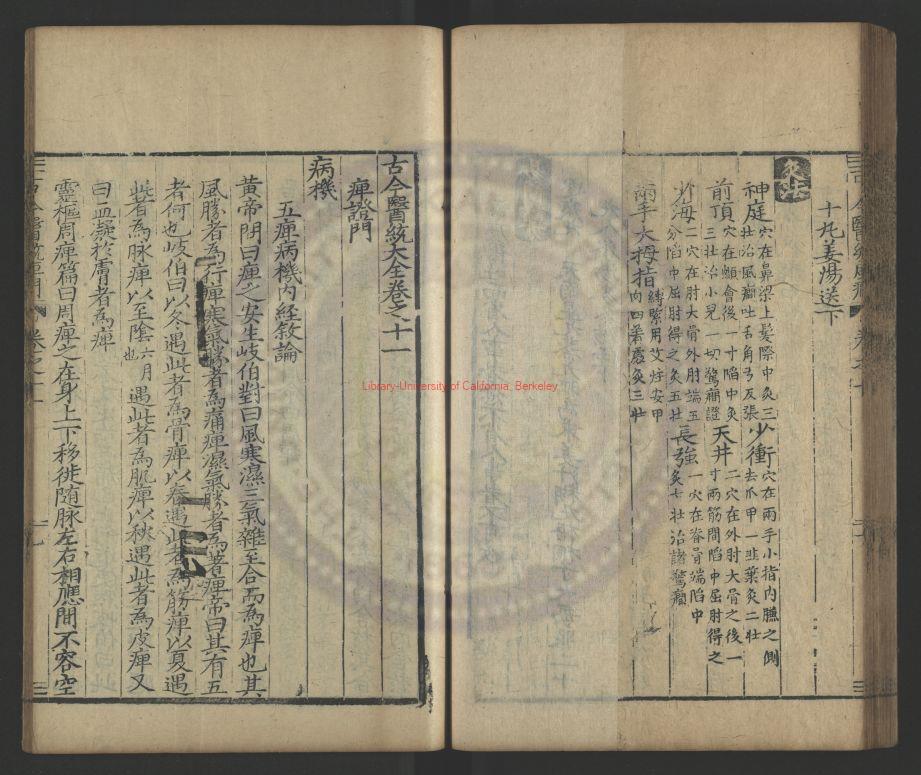 十九姜湯送下
灸法
神庭穴在鼻梁上髮際中灸三壯治風癇吐舌角弓反張 少衝穴在兩手小指內臁之側去爪甲一韭葉灸二壯
前頂穴在顖會後一寸陷中灸三壯治小兒一切驚癇證 天井二穴在外肘大骨之後一寸兩筋間陷中屈肘得之
少海二穴在肘大骨外肘端五分陷中屈肘得之灸五壯 長強一穴在脊骨端陷中灸七壯治諸驚癇
兩手大拇指縛緊用艾炷安甲向四著處灸三壯
古今醫統大全卷之十一
痺證門
病機
五痺病機內經敘論
黃帝問曰痺之安生岐伯對曰風寒濕三氣雜至合而為痺也其
風勝者為行痺寒氣勝者為痛痺濕氣勝者為著痺帝曰其有五
者何也岐伯曰以冬遇此者為骨痺以春遇此者為筋痺以夏遇
此者為脉痺以至陰六月也遇此者為肌痺以秋遇此者為皮痺又
曰血凝於膚者為痺
靈樞周痺篇曰周痺之在身上下移徙隨脉左右相應間不容空
Library-University of California, Berkeley